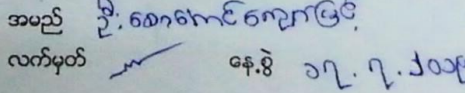 အမည် ဦးဇော်ကောင်းကျော်မြင့်
လက်မှတ် နေ့စွဲ ၁၇.၇.၂၀၁၉